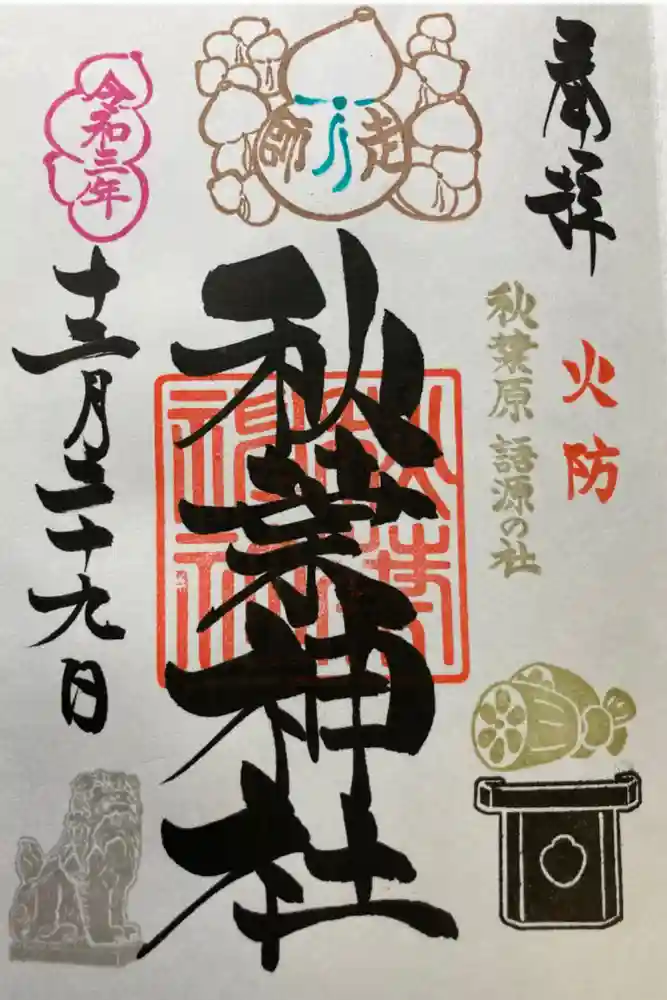 奉拝
火防
秋葉原 語源の社
師走
秋葉神社
秋葉神社
令和三年
十二月二十九日